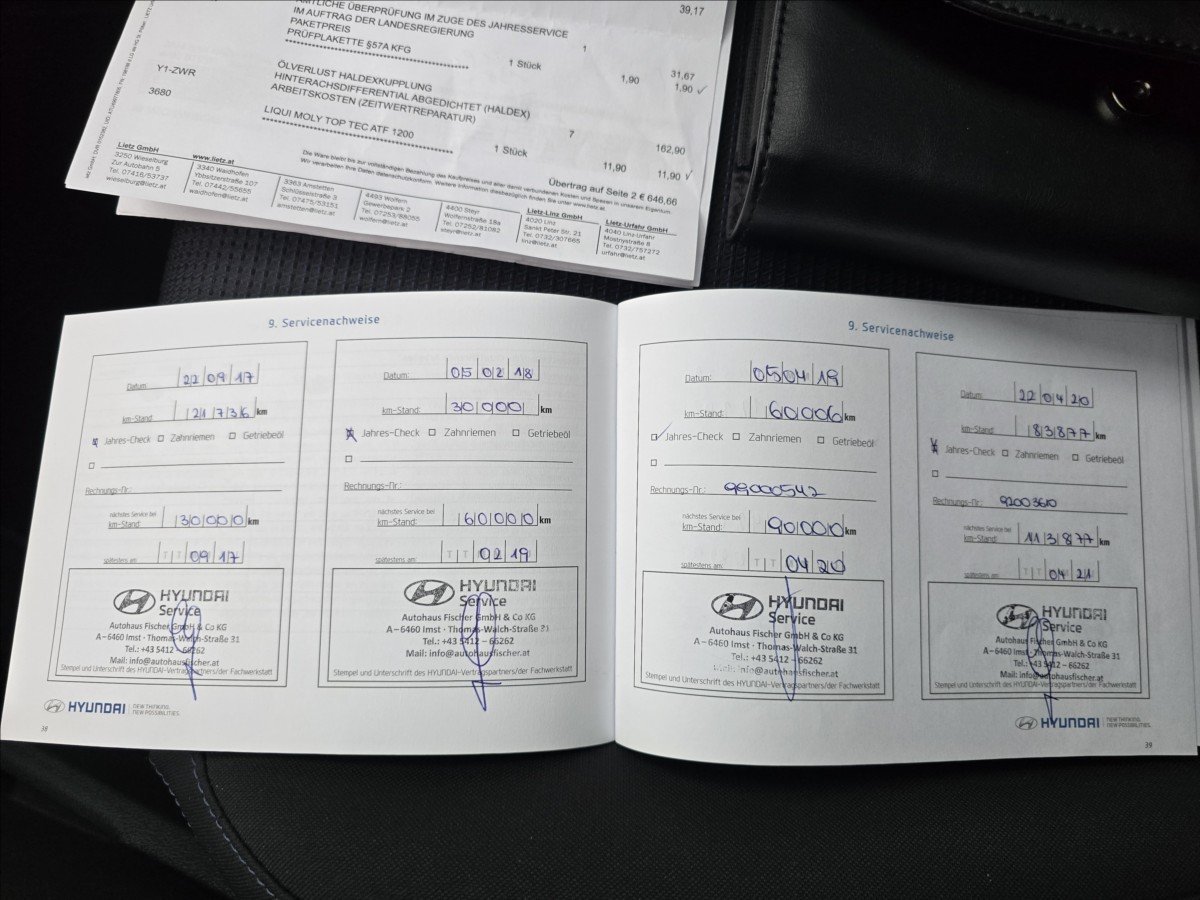 39,17
AMTLICHE ÜBERPRÜFUNG IM ZUGE DES JAHRESSERVICE
IM AUFTRAG DER LANDESREGIERUNG 1
PAKETPREIS 31,67
PRÜFPLAKETTE §57A KFG 1 Stück 1,90 1,90 ✓
****************************************
Y1-ZWR ÖLVERLUST HALDEXKUPPLUNG
HINTERACHSDIFFERENTIAL ABGEDICHTET (HALDEX)
ARBEITSKOSTEN (ZEITWERTREPARATUR) 7 162,90
3680 LIQUI MOLY TOP TEC ATF 1200 1 Stück 11,90 11,90 ✓
****************************************
Übertrag auf Seite 2 € 646,66
Die Ware bleibt bis zur vollständigen Bezahlung des Kaufpreises und aller damit verbundenen Kosten und Spesen in unserem Eigentum.
Wir verarbeiten Ihre Daten datenschutzkonform. Weitere Information diesbezüglich finden Sie unter www.lietz.at
Lietz GmbH
3250 Wieselburg
Zur Autobahn 5
Tel. 07416/53737
wieselburg@lietz.at
www.lietz.at
3340 Waidhofen
Ybbsitzerstraße 107
Tel. 07442/55655
waidhofen@lietz.at
3363 Amstetten
Schlüsselstraße 3
Tel. 07475/53151
amstetten@lietz.at
4493 Wolfern
Gewerbepark 2
Tel. 07253/88055
wolfern@lietz.at
4400 Steyr
Wolfernstraße 18a
Tel. 07252/81082
steyr@lietz.at
Lietz-Linz GmbH
4020 Linz
Sankt Peter Str. 21
Tel. 0732/307665
linz@lietz.at
Lietz-Urfahr GmbH
4040 Linz-Urfahr
Mostnystraße 8
Tel. 0732/757272
urfahr@lietz.at
9. Servicenachweise
Datum: 22 09 17
km-Stand: 21736 km
Jahres-Check Zahnriemen Getriebeöl
Rechnungs-Nr.:
nächstes Service bei
km-Stand: 30000 km
spätestens am: T T 09 17
HYUNDAI
Service
Autohaus Fischer GmbH & Co KG
A–6460 Imst · Thomas-Walch-Straße 31
Tel.: +43 5412 – 66262
Mail: info@autohausfischer.at
Stempel und Unterschrift des HYUNDAI-Vertragspartners/der Fachwerkstatt
Datum: 05 02 18
km-Stand: 30000 km
Jahres-Check Zahnriemen Getriebeöl
Rechnungs-Nr.:
nächstes Service bei
km-Stand: 60000 km
spätestens am: T T 02 19
HYUNDAI
Service
Autohaus Fischer GmbH & Co KG
A–6460 Imst · Thomas-Walch-Straße 31
Tel.: +43 5412 – 66262
Mail: info@autohausfischer.at
Stempel und Unterschrift des HYUNDAI-Vertragspartners/der Fachwerkstatt
HYUNDAI NEW THINKING.
NEW POSSIBILITIES.
38
9. Servicenachweise
Datum: 05 04 19
km-Stand: 60006 km
Jahres-Check Zahnriemen Getriebeöl
Rechnungs-Nr.: 99000542
nächstes Service bei
km-Stand: 90000 km
spätestens am: T T 04 20
HYUNDAI
Service
Autohaus Fischer GmbH & Co KG
A–6460 Imst · Thomas-Walch-Straße 31
Tel.: +43 5412 – 66262
Mail: info@autohausfischer.at
Stempel und Unterschrift des HYUNDAI-Vertragspartners/der Fachwerkstatt
Datum: 22 04 20
km-Stand: 83877 km
Jahres-Check Zahnriemen Getriebeöl
Rechnungs-Nr.: 92003610
nächstes Service bei
km-Stand: 113877 km
spätestens am: T T 04 21
HYUNDAI
Service
Autohaus Fischer GmbH & Co KG
A–6460 Imst · Thomas-Walch-Straße 31
Tel.: +43 5412 – 66262
Mail: info@autohausfischer.at
Stempel und Unterschrift des HYUNDAI-Vertragspartners/der Fachwerkstatt
HYUNDAI NEW THINKING.
NEW POSSIBILITIES.
39